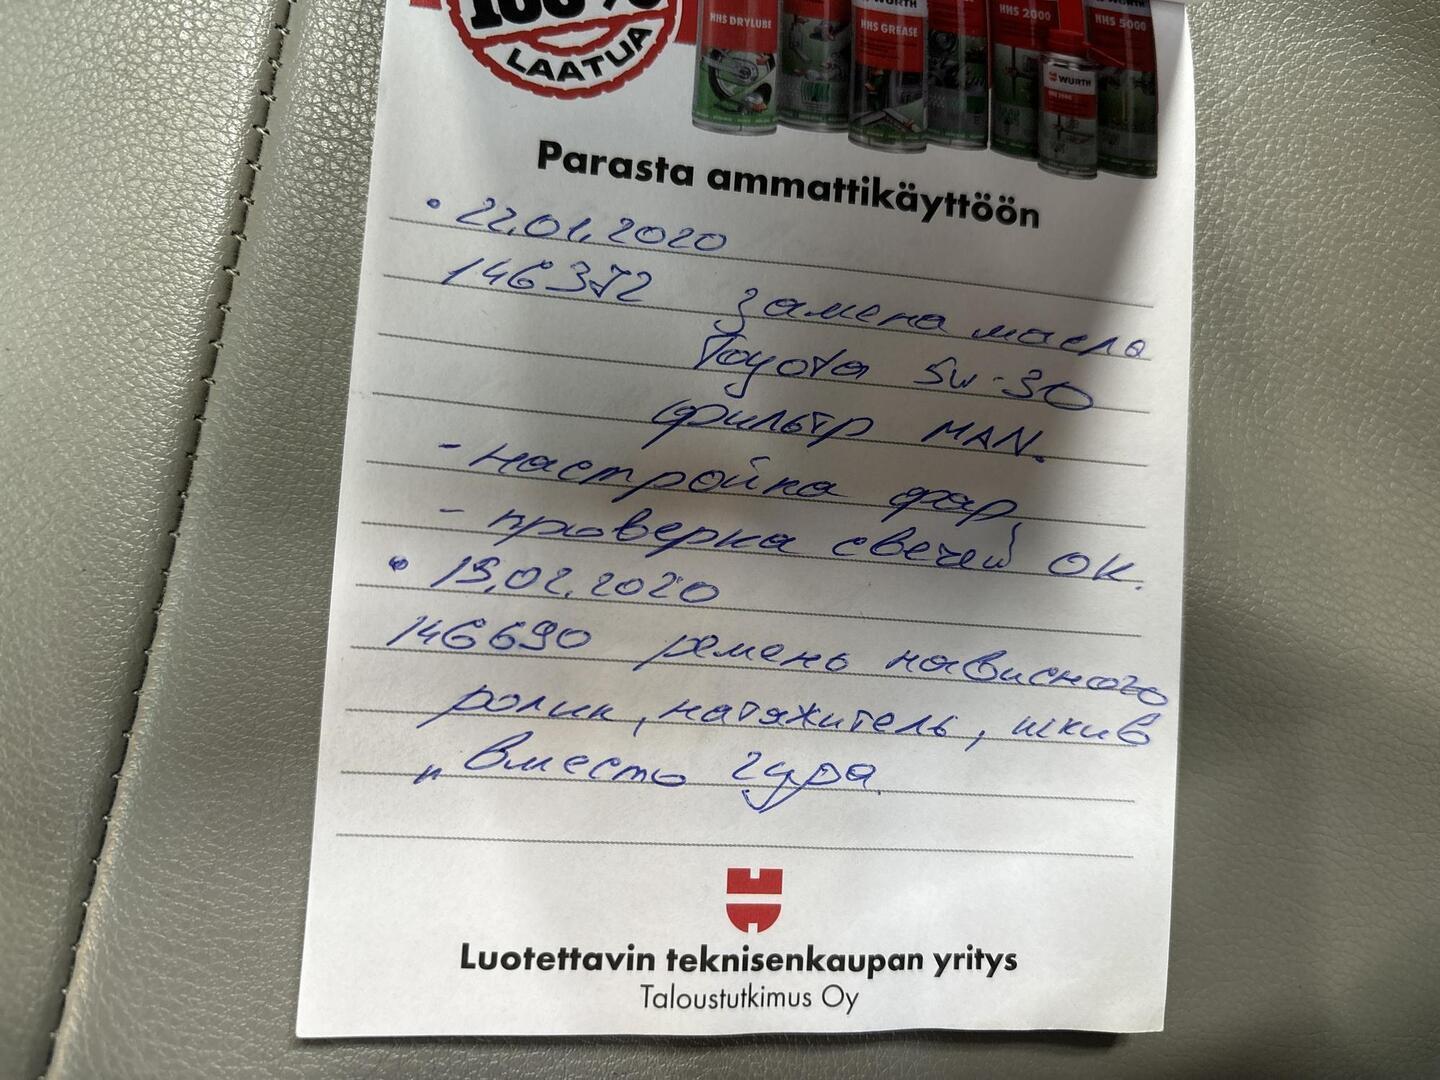 100%
LAATUA
HHS DRYLUBE
HHS GREASE
HHS 2000
HHS 5000
WÜRTH
Parasta ammattikäyttöön
• 22.01.2020
146372 замена масла
Toyota 5w-30
фильтр MAN.
- настройка фар,
- проверка свечей ОК.
• 15.02.2020
146690 ремень нависного
ролик, натяжитель, шкив
" вместо гура.
Luotettavin teknisenkaupan yritys
Taloustutkimus Oy